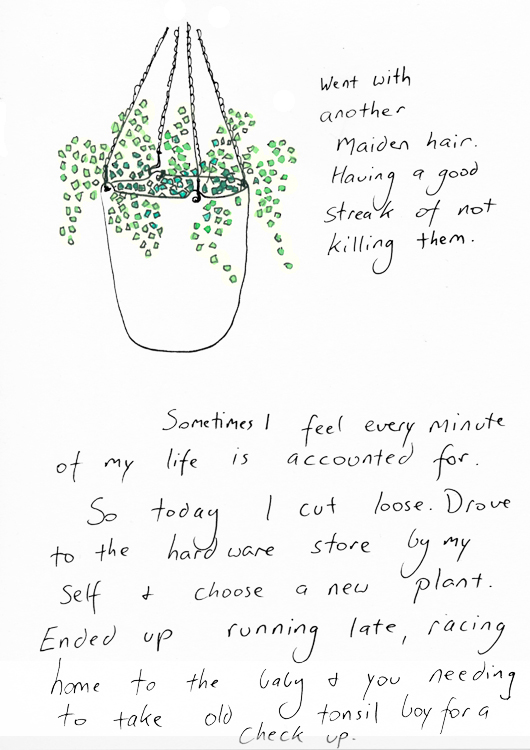 Went with
another
Maiden hair.
Having a good
streak of not
killing them.
Sometimes I feel every minute
of my life is accounted for.
So today I cut loose. Drove
to the hardware store by my
self & choose a new plant.
Ended up running late, racing
home to the baby & you needing
to take old tonsil boy for a
check up.